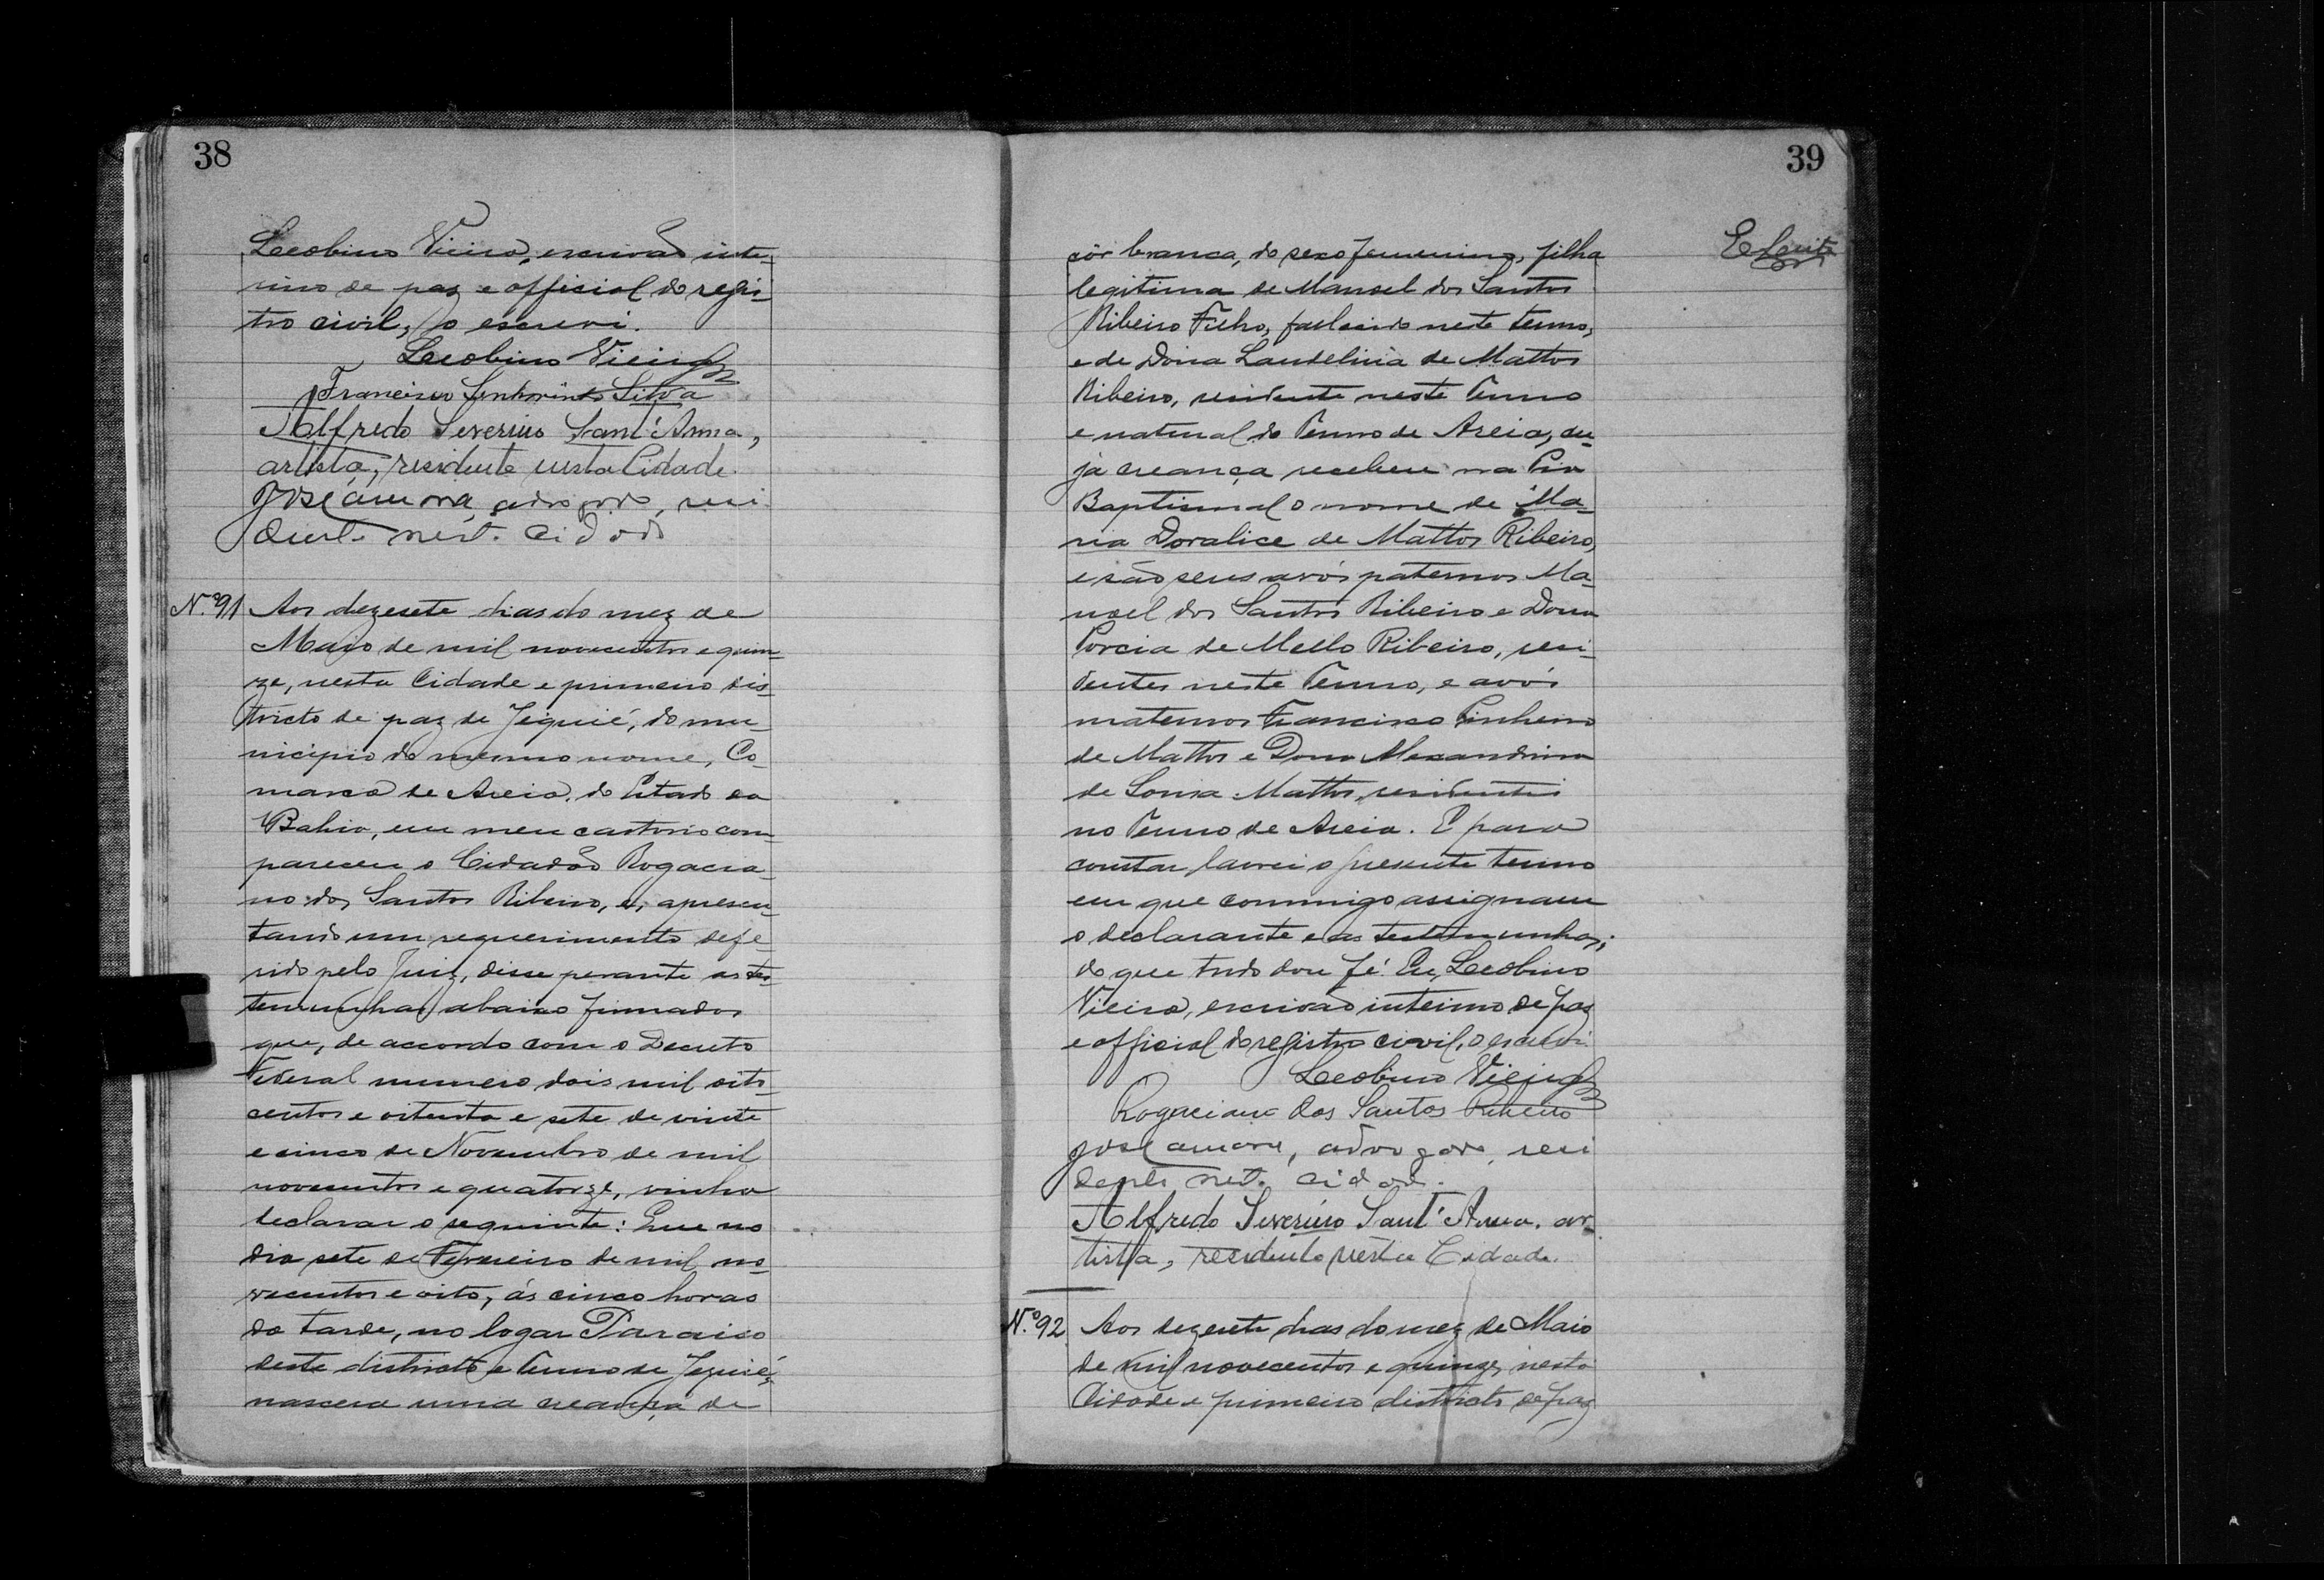 38
Leobino Vieira, escrivão inte-
rino de paz e official do regis-
tro civil, o escrevi.
Leobino Vieira
Francisco Senhorinho Silva
Alfredo Severino Sant'Anna,
artista, residente nesta Cidade.
José advogado, resi
dente nesta cidade
N.º 91 Aos dezesete dias do mez de
Maio de mil novecentos e quin-
ze, nesta Cidade e primeiro dis-
tricto de paz de Jequié, do mu-
nicipio do mesmo nome, Co-
marca de Areia, do Estado da
Bahia, em meu cartorio com-
pareceu o Cidadão Rogacia-
no dos Santos Ribeiro, e, apresen-
tando um requerimento defe-
rido pelo Juiz, disse perante as tes-
temunhas abaixo firmadas
que, de accordo com o Decreto
Federal numero dois mil oito
centos e oitenta e sete de vinte
e cinco de Novembro de mil
novecentos e quatorze, vinha
declarar o seguinte: Que no
dia sete de Fevereiro de mil no-
vecentos e oito, ás cinco horas
da tarde, no logar Paraiso
deste districto e Termo de Jequié,
nascera uma creança de
39
côr branca, do sexo femenino, filha
legitima de Manoel dos Santos
Ribeiro Filho, fallecido neste termo,
e de Dona Laudelina de Mattos
Ribeiro, residente neste Termo
e natural do Termo de Areia, cu-
ja creança recebeu na Pia
Baptismal o nome de Ma-
ria Doralice de Mattos Ribeiro,
e são seus avós paternos Ma-
noel dos Santos Ribeiro e Dona
Porcia de Mello Ribeiro, resi-
dentes neste Termo, e avós
maternos Francisco Pinheiro
de Mattos e Dona Alexandrina
de Souza Mattos, residentes
no Termo de Areia. E para
constar lavrei o presente termo
em que commigo assignam
o declarante e as testemunhas;
do que tudo dou fé. Eu, Leobino
Vieira, escrivão interino de paz
e official do registro civil, o escrevi.
Leobino Vieira
Rogaciano dos Santos Ribeiro
José advogado, resi
dente nesta cidade.
Alfredo Severino Sant'Anna, ar-
tista, residente nesta Cidade.
N.º 92 Aos dezesete dias do mez de Maio
de mil novecentos e quinze, nesta
Cidade e primeiro districto de paz